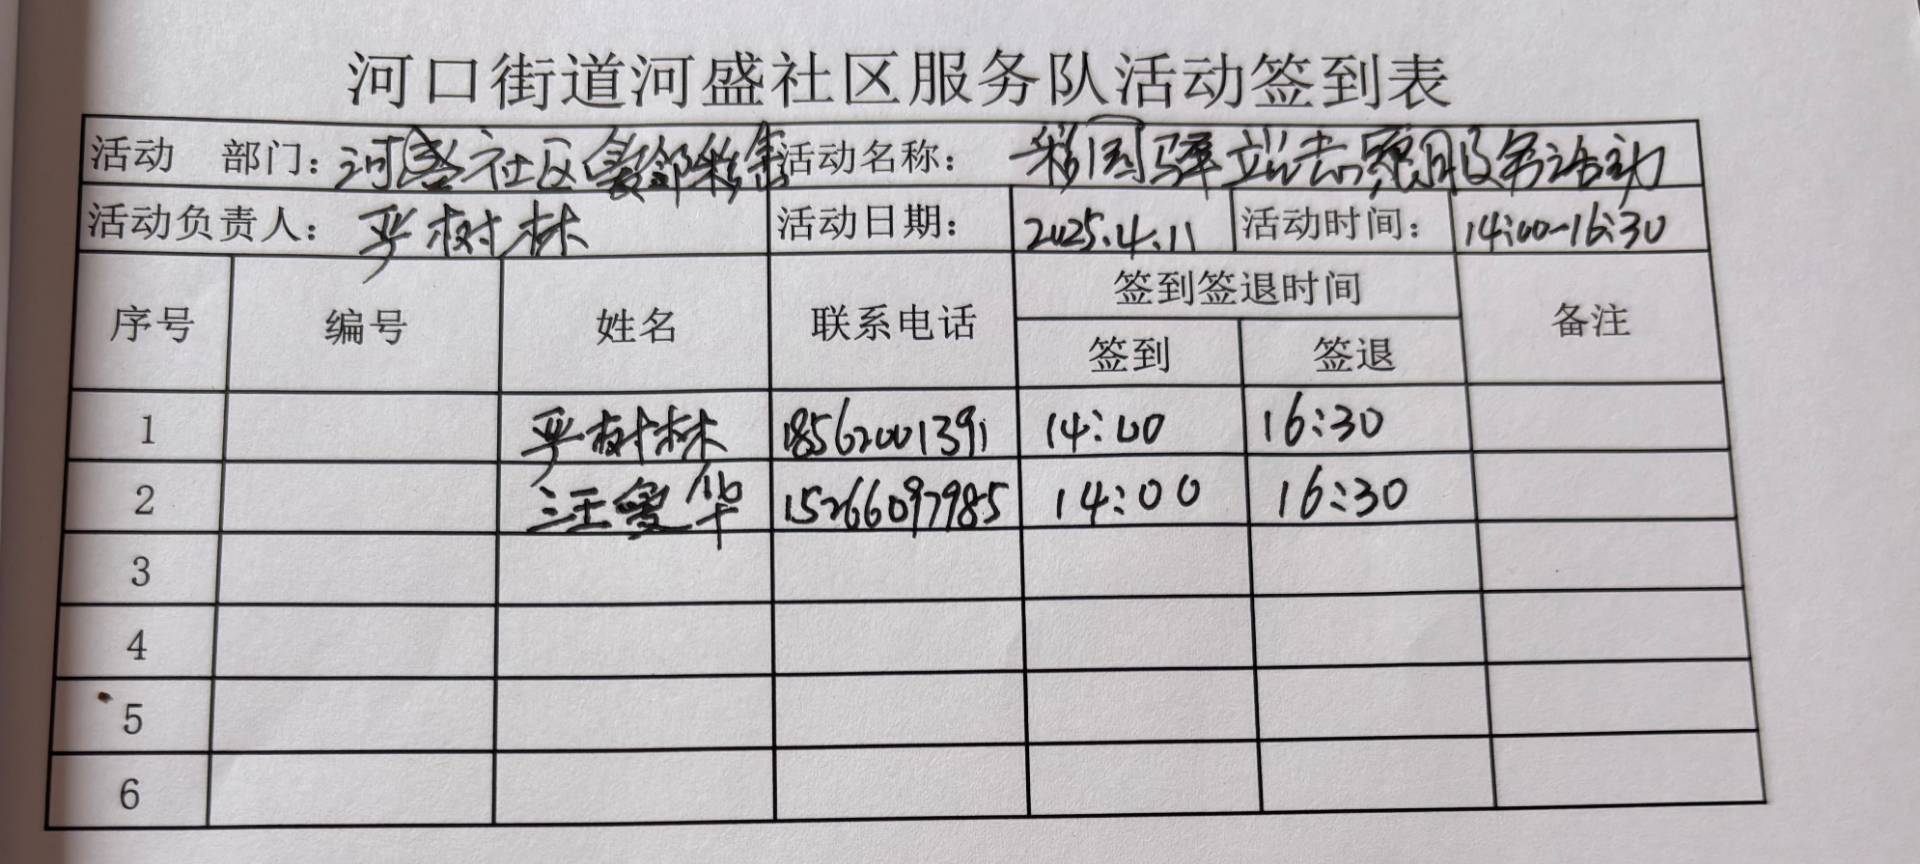 河口街道河盛社区服务队活动签到表
活动 部门：河盛社区 活动名称：驿站志愿服务活动
活动负责人：严树林 活动日期：2025.4.11 活动时间：14:00-16:30
序号 编号 姓名 联系电话 签到签退时间 备注
签到 签退
1 严树林 18562001391 14:00 16:30
2 汪爱华 15266097985 14:00 16:30
3
4
5
6